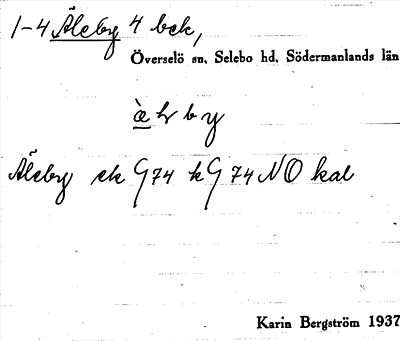 1-4 Äleby 4 bek,
Överselö sn, Selebo hd, Södermanlands län
Äleby ek G74 kG74 NO kal
Karin Bergström 1937